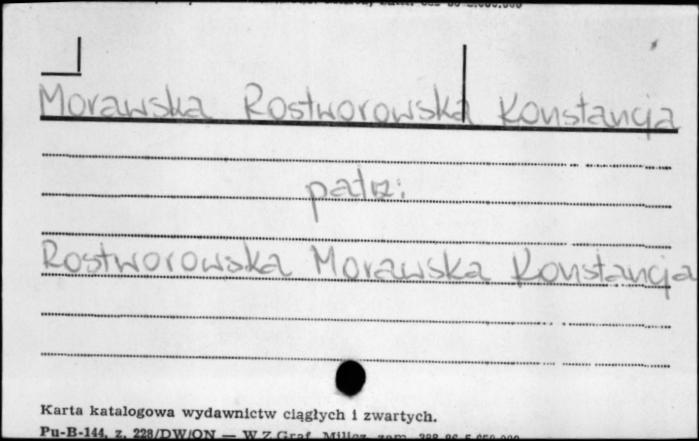 Morawska Rostworowska Konstancja
patrz:
Rostworowska Morawska Konstancja
Karta katalogowa wydawnictw ciągłych i zwartych.
Pu-B-144, z. 228/DW/ON — W.Z.Graf. Milicz, zam.